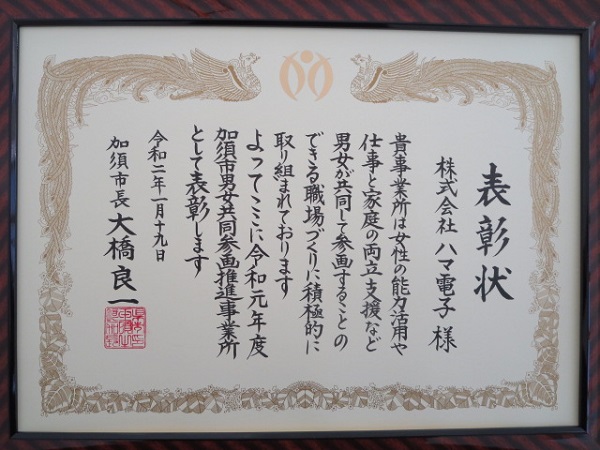 表彰状
株式会社 ハマ電子 様
貴事業所は女性の能力活用や
仕事と家庭の両立支援など
男女が共同して参画することの
できる職場づくりに積極的に
取り組まれております
よってここに令和元年度
加須市男女共同参画推進事業所
として表彰します
令和二年一月十九日
加須市長 大橋良一